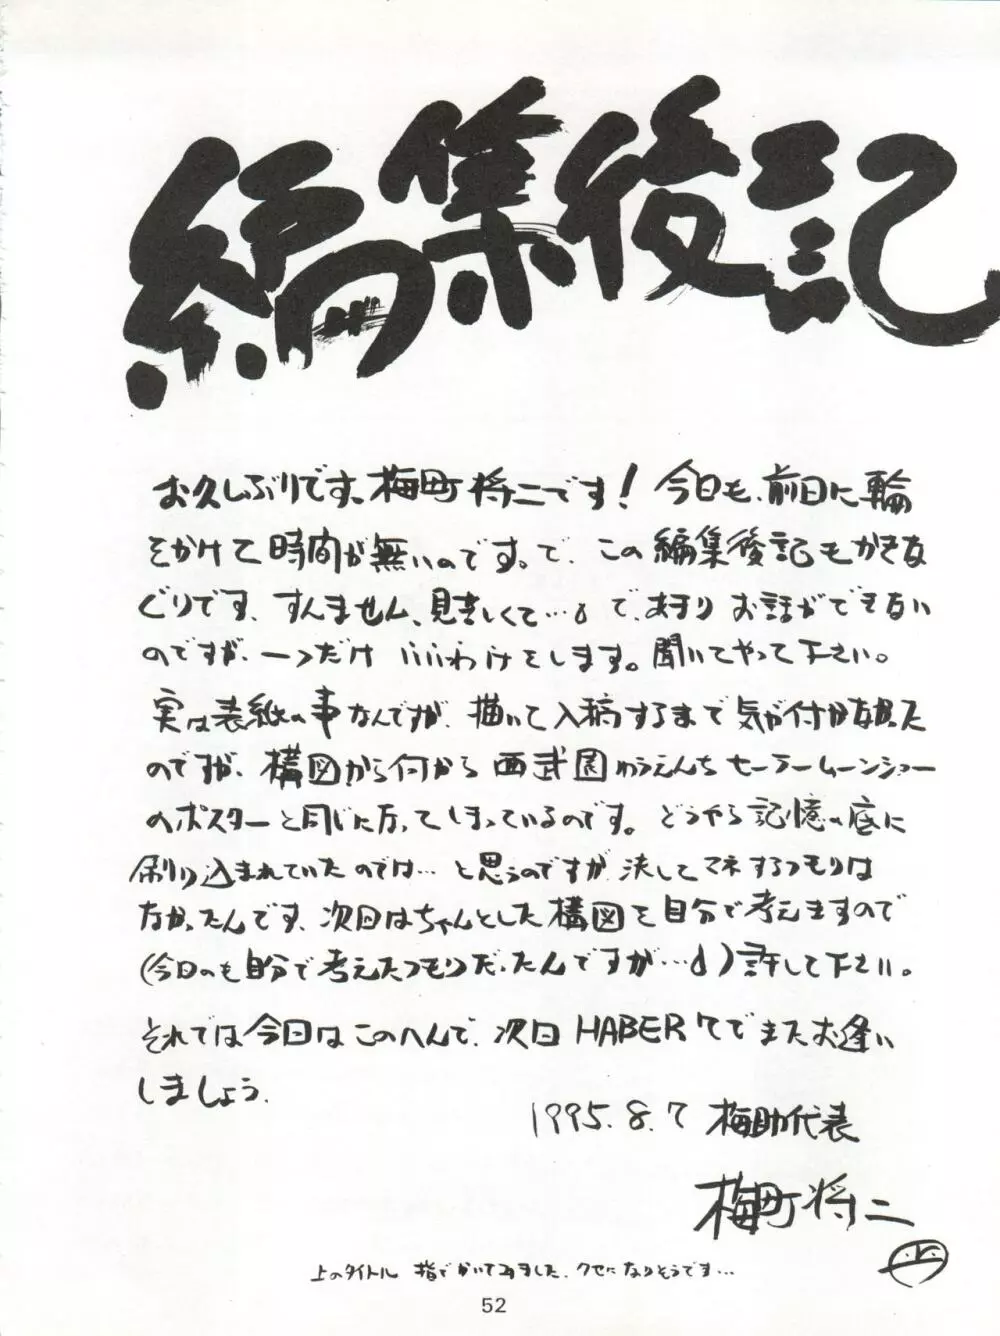 編集後記
お久しぶりです、梅町将二です！今回も、前回に輪
をかけて時間が無いのです。で、この編集後記もかきな
ぐりです、すんません、見苦しくて…。で、あまりお話ができない
のですが、一つだけいいわけをします。聞いてやって下さい。
実は表紙の事なんですが、描いて入稿するまで気が付かなかった
のですが、構図から何から西武園ゆうえんちセーラームーンショー
のポスターと同じになってしまっているのです。どうやら記憶の底に
刷り込まれていたのでは…と思うのですが決してマネするつもりは
なかったんです、次回はちゃんとした構図を自分で考えますので
(今回のも自分で考えたつもりだったんですが…)許して下さい。
それでは今回はこのへんで、次回HABER7でまたお逢い
しましょう。
1995.8.7 梅助代表
梅町将二
上のタイトル 指でかいてみました、クセになりそうです…
52